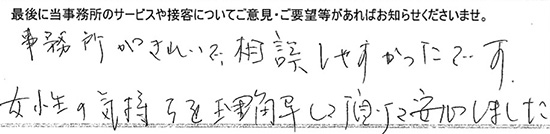 最後に当事務所のサービスや接客についてご意見・ご要望等があればお知らせくださいませ。
事務所がきれいで、相談しやすかったです。
女性の気持ちを理解して頂いて安心しました